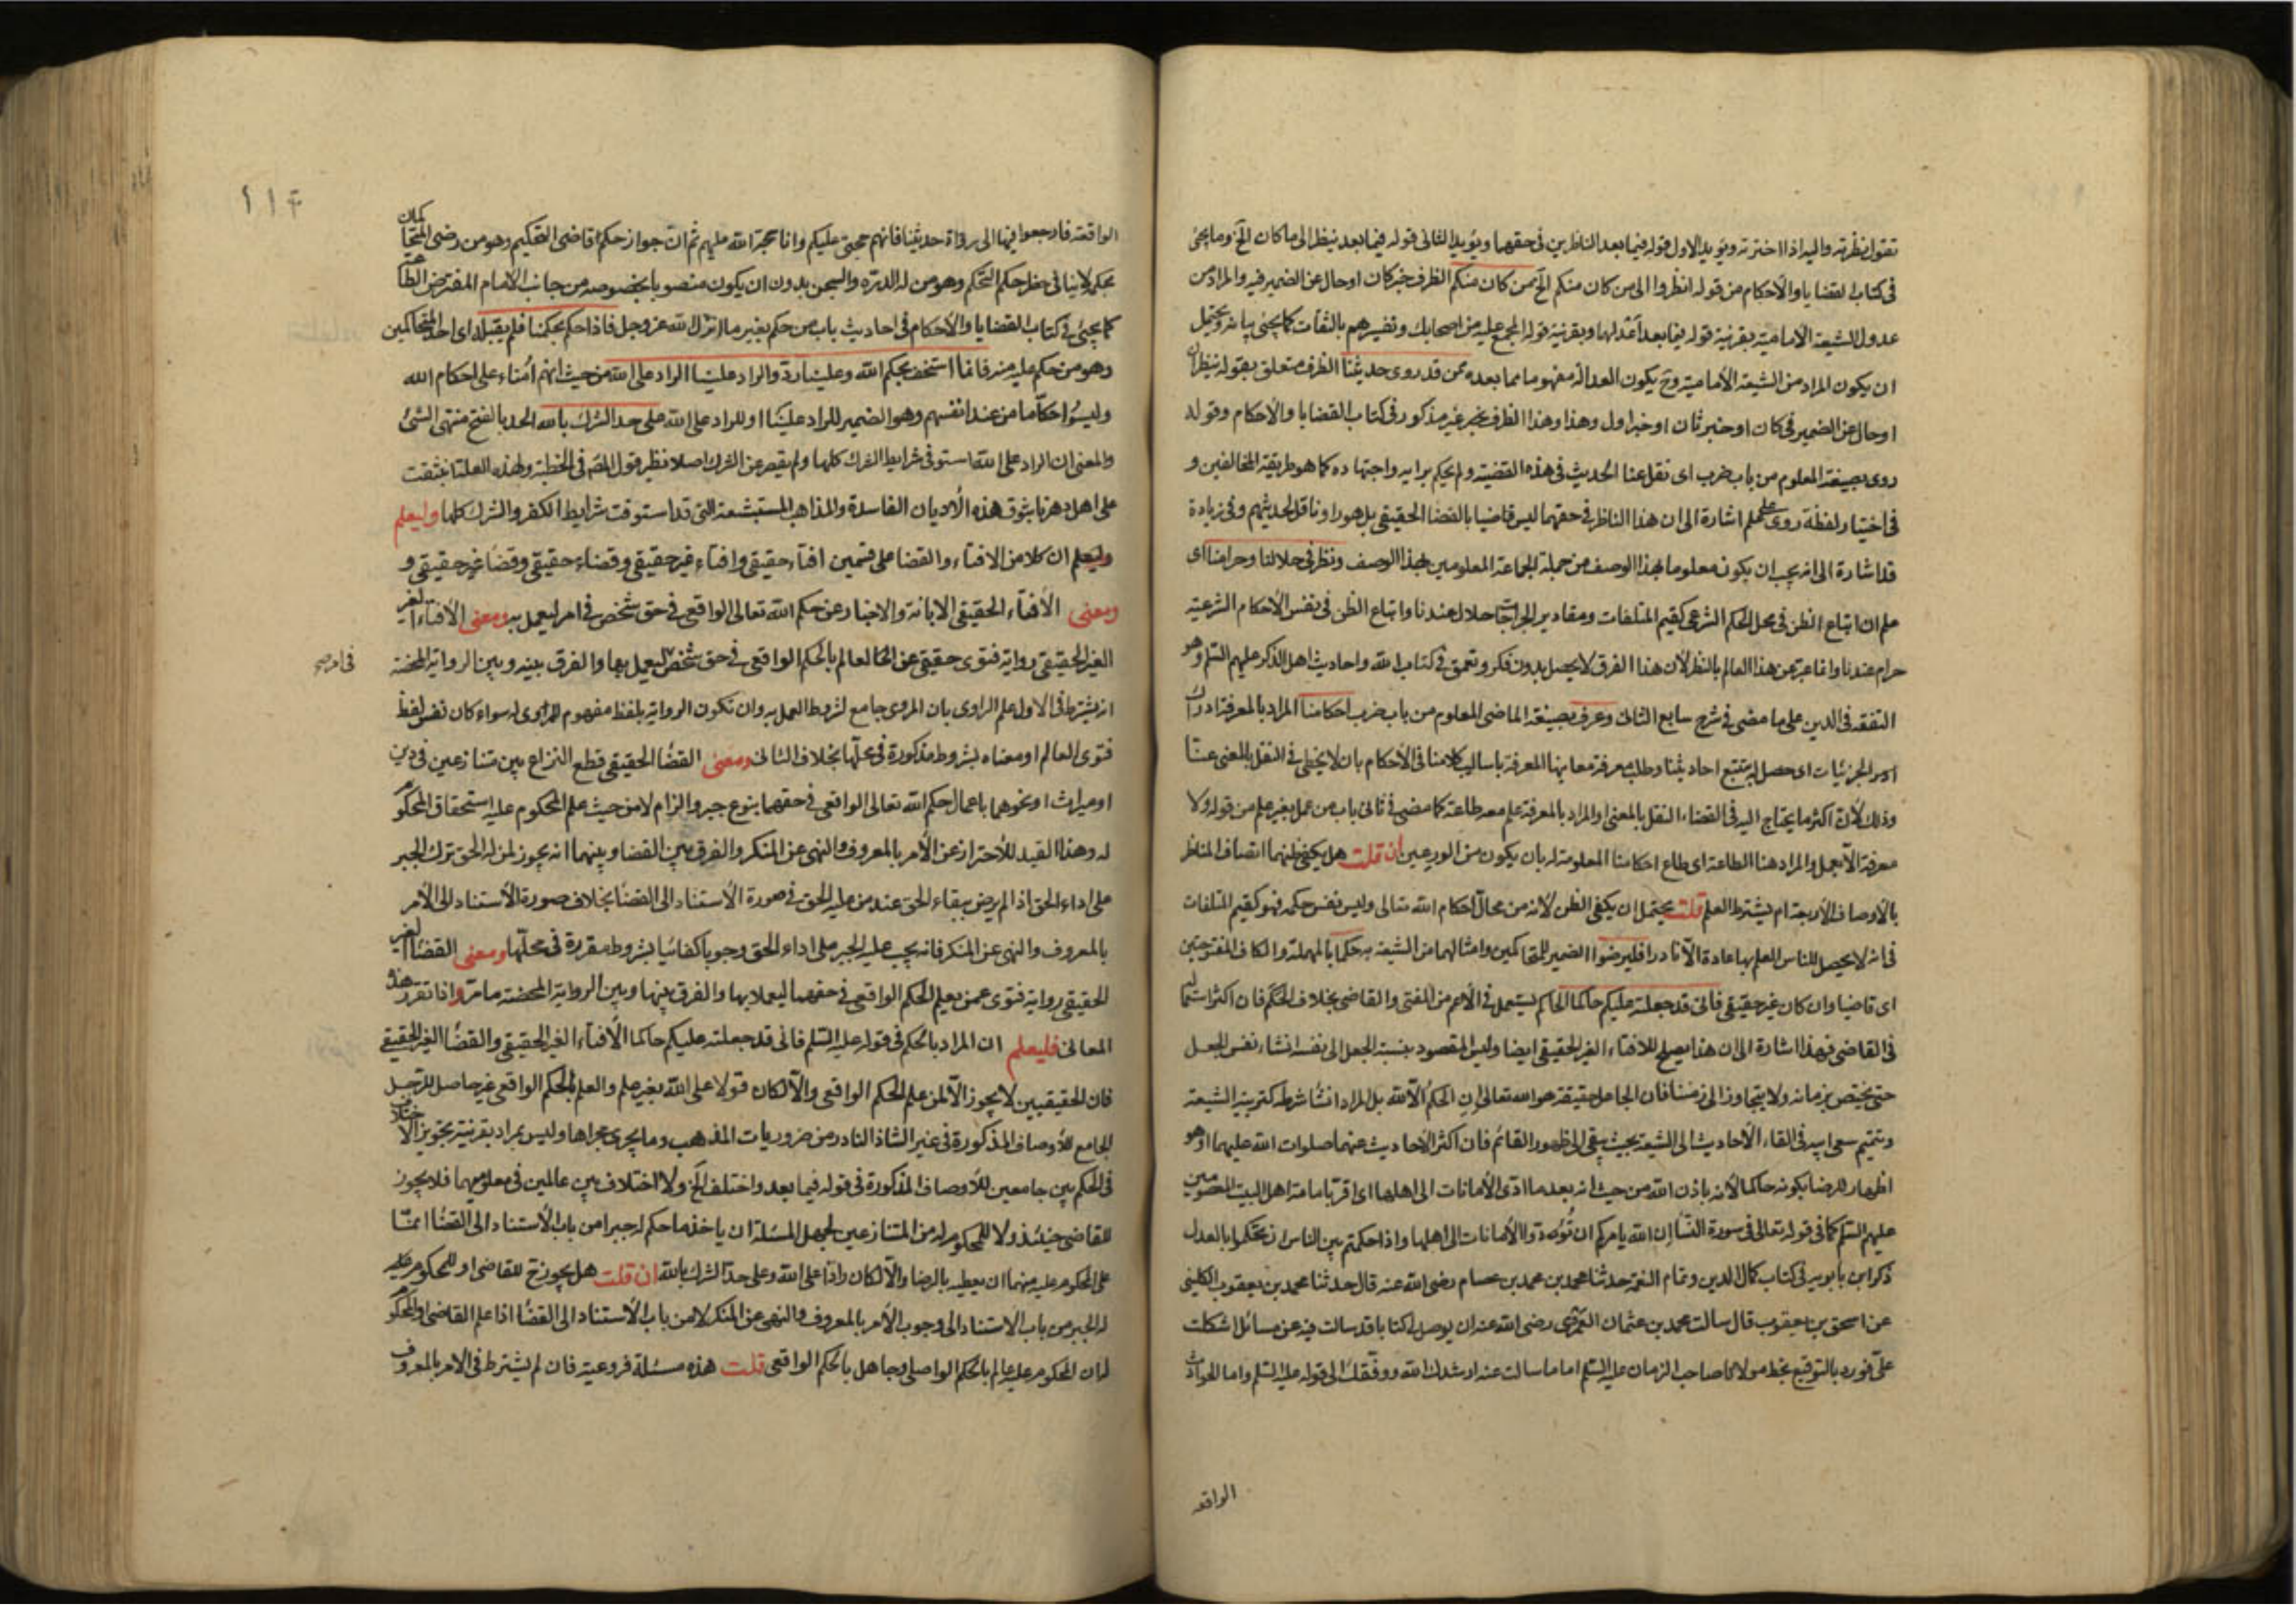 تقول نظرته واليه اذا اخترته ويؤيد الاول قوله فيما بعد الناظرين في حقهما ويؤيد الثاني قوله فيما بعد ينظر الى ما كان الخ وما يجئ
في كتاب القضايا والأحكام من قوله انظروا الى من كان منكم الخ ممن كان منكم الظرف خبر كان او حال عن الضمير فيه والمراد من
عدول الشيعة الامامية بقرنية قوله فيما بعد اعدلهما وبقرنية قوله المجمع عليه من اصحابك وتفسيرهم بالثقات كما يجئ بيانه ويحتمل
ان يكون المراد من الشيعة الأمامية وح يكون العدالة مفهوما مما بعده ممن قد روى حديثنا الظرف متعلق بقوله ينظران
او حال عن الضمير في كان او خبر ثان او خبر اول وهذا وهذا الظرف غير مذكور في كتاب القضايا والأحكام وقوله
روى بصيغة المعلوم من باب ضرب اى نقل عنا الحديث في هذه القضية ولم يحكم برايه واجتهاده كما هو طريقة المخالفين و
في اختيار لفظة روى على علم اشارة الى ان هذا الناظر في حقهما ليس قاضيا بالقضا الحقيقي بل هو راو وناقل لحديثهم وفي زيادة
قد اشارة الى انه يجب ان يكون معلوما بهذا الوصف من جملة الجماعة المعلومين بهذا الوصف ونظر في حلالنا وحرامنا اى
علم ان اتباع الظن في محل الحكم الشرعي كقيم المتلفات ومقادير الجراحات حلال عندنا واتباع الظن في نفس الأحكام الشرعية
حرام عندنا وانما عبر عن هذا العالم بالنظر لأن هذا الفرق لا يحصل بدون فكر وتعمق في كتاب الله واحاديث اهل الذكر عليهم السلم وهو
التفقه في الدين على ما مضى في شرح سابع الثاني وعرف بصيغة الماضى المعلوم من باب ضرب احكامنا المراد بالمعرفة ادراك
الجزئيات اى حصل له بتتبع احاديثنا وطلب معرفة معانيها المعرفة باساليب كلامنا في الأحكام بان لا يخطى في النقل بالمعنى عنا
وذلك لأن اكثر ما يحتاج اليه في القضاء النقل بالمعنى او المراد بالمعرفة علم معه طاعة كما مضى في ثاني باب من عمل بغير علم من قوله ولا
معرفة الا بعمل والمراد هنا الطاعة اى طاع احكامنا المعلومة له بان يكون من الورعين ان قلت هل يكفي ظنهما اتصاف الناظر
بالأوصاف الأربعة ام يشترط العلم قلت يحتمل ان يكفي الظن لأنه من محال احكام الله تعالى وليس نفس حكمه فهو كقيم المتلفات
في انه لا يحصل للناس العلم بها عادة الا نادرا فليرضوا الضمير للمتحاكمين وامثالهما من الشيعة به حكما بالمهملة والكاف المفتوحتين
اى قاضيا وان كان غير حقيقي فاني قد جعلته عليكم حاكما الحاكم يستعمل في الأعم من المفتى والقاضى بخلاف الحكم فان اكثر استعماله
في القاضى فهذا اشارة الى ان هذا يصلح للافتاء الغير الحقيقي ايضا وليس المقصود بنسبة الجعل الى نفسه انشاء نفس الجعل
حتى يختص بزمانه ولا يتجاوز الى زمننا فان الجاعل حقيقة هو الله تعالى ان الحكم الا لله بل المراد انشا شرطه كتربية الشيعة
وتتميم سعى ابيه في القاء الأحاديث الى الشيعة بحيث يبقى الى ظهور القائم فان اكثر الأحاديث عنهما صلوات الله عليهما او هو
اظهار للرضا بكونه حاكما لأنه باذن الله من حيث انه بعد ما ادى الأمانات الى اهلها اى اقر بامامة اهل البيت المعصومين
عليهم السلم كما في قوله تعالى في سورة النسا ان الله يامركم ان تؤدوا الأمانات الى اهلها واذا حكمتم بين الناس ان تحكموا بالعدل
ذكر ابن بابويه في كتاب كمال الدين وتمام النعمة حدثنا محمد بن محمد بن عصام رضى الله عنه قال حدثنا محمد بن يعقوب الكليني
عن اسحق بن يعقوب قال سالت محمد بن عثمان العمرى رضى الله عنه ان يوصل لى كتابا قد سالت فيه عن مسائل اشكلت
على فورد بالتوقيع بخط مولانا صاحب الزمان عليه السلم اما ما سالت عنه ارشدك الله ووفقك الى قوله عليه السلم واما الحوادث
الواقعه
١١٢
الواقعة فارجعوا فيها الى رواة حديثنا فانهم حجتى عليكم وانا حجة الله عليهم ثم ان جواز حكم قاضى التحكيم وهو من رضى المتحاكمان
بحكمه لا ينافي حظر حكم الحكم وهو من له الدره والسجن بدون ان يكون منصوبا بخصوصه من جانب الامام المفترض الطاعة
كما يجئ في كتاب القضايا والأحكام في احاديث باب من حكم بغير ما انزل الله عز وجل فاذا حكم بحكمنا فلم يقبله اى احد المتحاكمين
وهو من حكم عليه منه فانما استخف بحكم الله وعلينا رد والراد علينا الراد على الله من حيث انهم امناء على احكام الله
وليسوا حكاما من عند انفسهم وهو الضمير للراد علينا او للراد على الله على حد الشرك بالله الحد بالفتح منتهى الشئ
والمعنى ان الراد على الله استوفى شرايط الشرك كلها ولم يقصر عن الشرك اصلا نظير قول المص في الخطبة ولهذه العلة انبثقت
على اهل دهرنا بثوق هذه الأديان الفاسدة والمذاهب المستبشعة التى قد استوفت شرايط الكفر والشرك كلها وليعلم
وليعلم ان كلا من الافتاء والقضا على قسمين افتاء حقيقي وافتاء غير حقيقي وقضاء حقيقي وقضاء غير حقيقي و
ومعنى الأفتاء الحقيقي الابانة والاخبار عن حكم الله تعالى الواقعي في حق شخص في امر ليعمل به ومعنى الأفتاء الغير
الغير الحقيقي رواية فتوى حقيقي عن العالم بالحكم الواقعي في حق شخص ليعمل بها والفرق بينه وبين الرواية المحضة
في امر صح
انه يشترط في الاول علم الراوى بان المروى جامع لشروط العمل به وان تكون الرواية بلفظ مفهوم للمروى له سواء كان نفس لفظ
فتوى العالم او معناه بشروط مذكورة في محلها بخلاف الثاني ومعنى القضا الحقيقي قطع النزاع بين متنازعين في دين
او ميراث او نحوهما باعمال حكم الله تعالى الواقعي في حقهما بنوع جبر والزام لا من حيث علم المحكوم عليه استحقاق المحكوم
له وهذا القيد للأحتراز عن الأمر بالمعروف والنهى عن المنكر والفرق بين القضا وبينهما انه يجوز لمن له الحق ترك الجبر
على اداء الحق اذا لم يرض ببقاء الحق عند من عليه الحق في صورة الأستناد الى القضا بخلاف صورة الأستناد الى الأمر
بالمعروف والنهى عن المنكر فانه يجب عليه الجبر على اداء الحق وجوبا كفائيا بشروط مقررة في محلها ومعنى القضا الغير
الحقيقي رواية فتوى عمن يعلم الحكم الواقعي في حقهما ليعملا بها والفرق بينها وبين الرواية المحضة ما مر واذا تقرر هذه
المعانى فليعلم ان المراد بالحكم في قوله عليه السلم فاني قد جعلته عليكم حاكما الأفتاء الغير الحقيقي والقضا الغير الحقيقي
فان الحقيقيين لا يجوز الا لمن علم الحكم الواقعي والا لكان قولا على الله بغير علم والعلم بالحكم الواقعي غير حاصل للرجل
الجامع للأوصاف المذكورة في غير الشاذ النادر من ضروريات المذهب وما يجرى مجراها وليس بمراد بقرنية تجويز الاختلاف
في الحكم بين جامعين للأوصاف المذكورة في قوله فيما بعد واختلف الخ ولا اختلاف بين عالمين في معلومهما فلا يجوز
للقاضى حينئذ ولا للمحكوم له من المتنازعين لجهل المسئلة ان ياخذ ما حكم له جبرا من باب الأستناد الى القضا انما
على المحكوم عليه منهما ان يعطيه بالرضا والا لكان رادا على الله وعلى حد الشرك بالله ان قلت هل يجوز ح للقاضى او للمحكوم عليه
له الجبر من باب الاستناد الى وجوب الأمر بالمعروف والنهى عن المنكر لا من باب الأستناد الى القضا اذا علم القاضى او المحكوم
له ان المحكوم عليه عالم بالحكم الواصلى وجاهل بالحكم الواقعي قلت هذه مسئلة فروعية فان لم يشترط في الامر بالمعروف